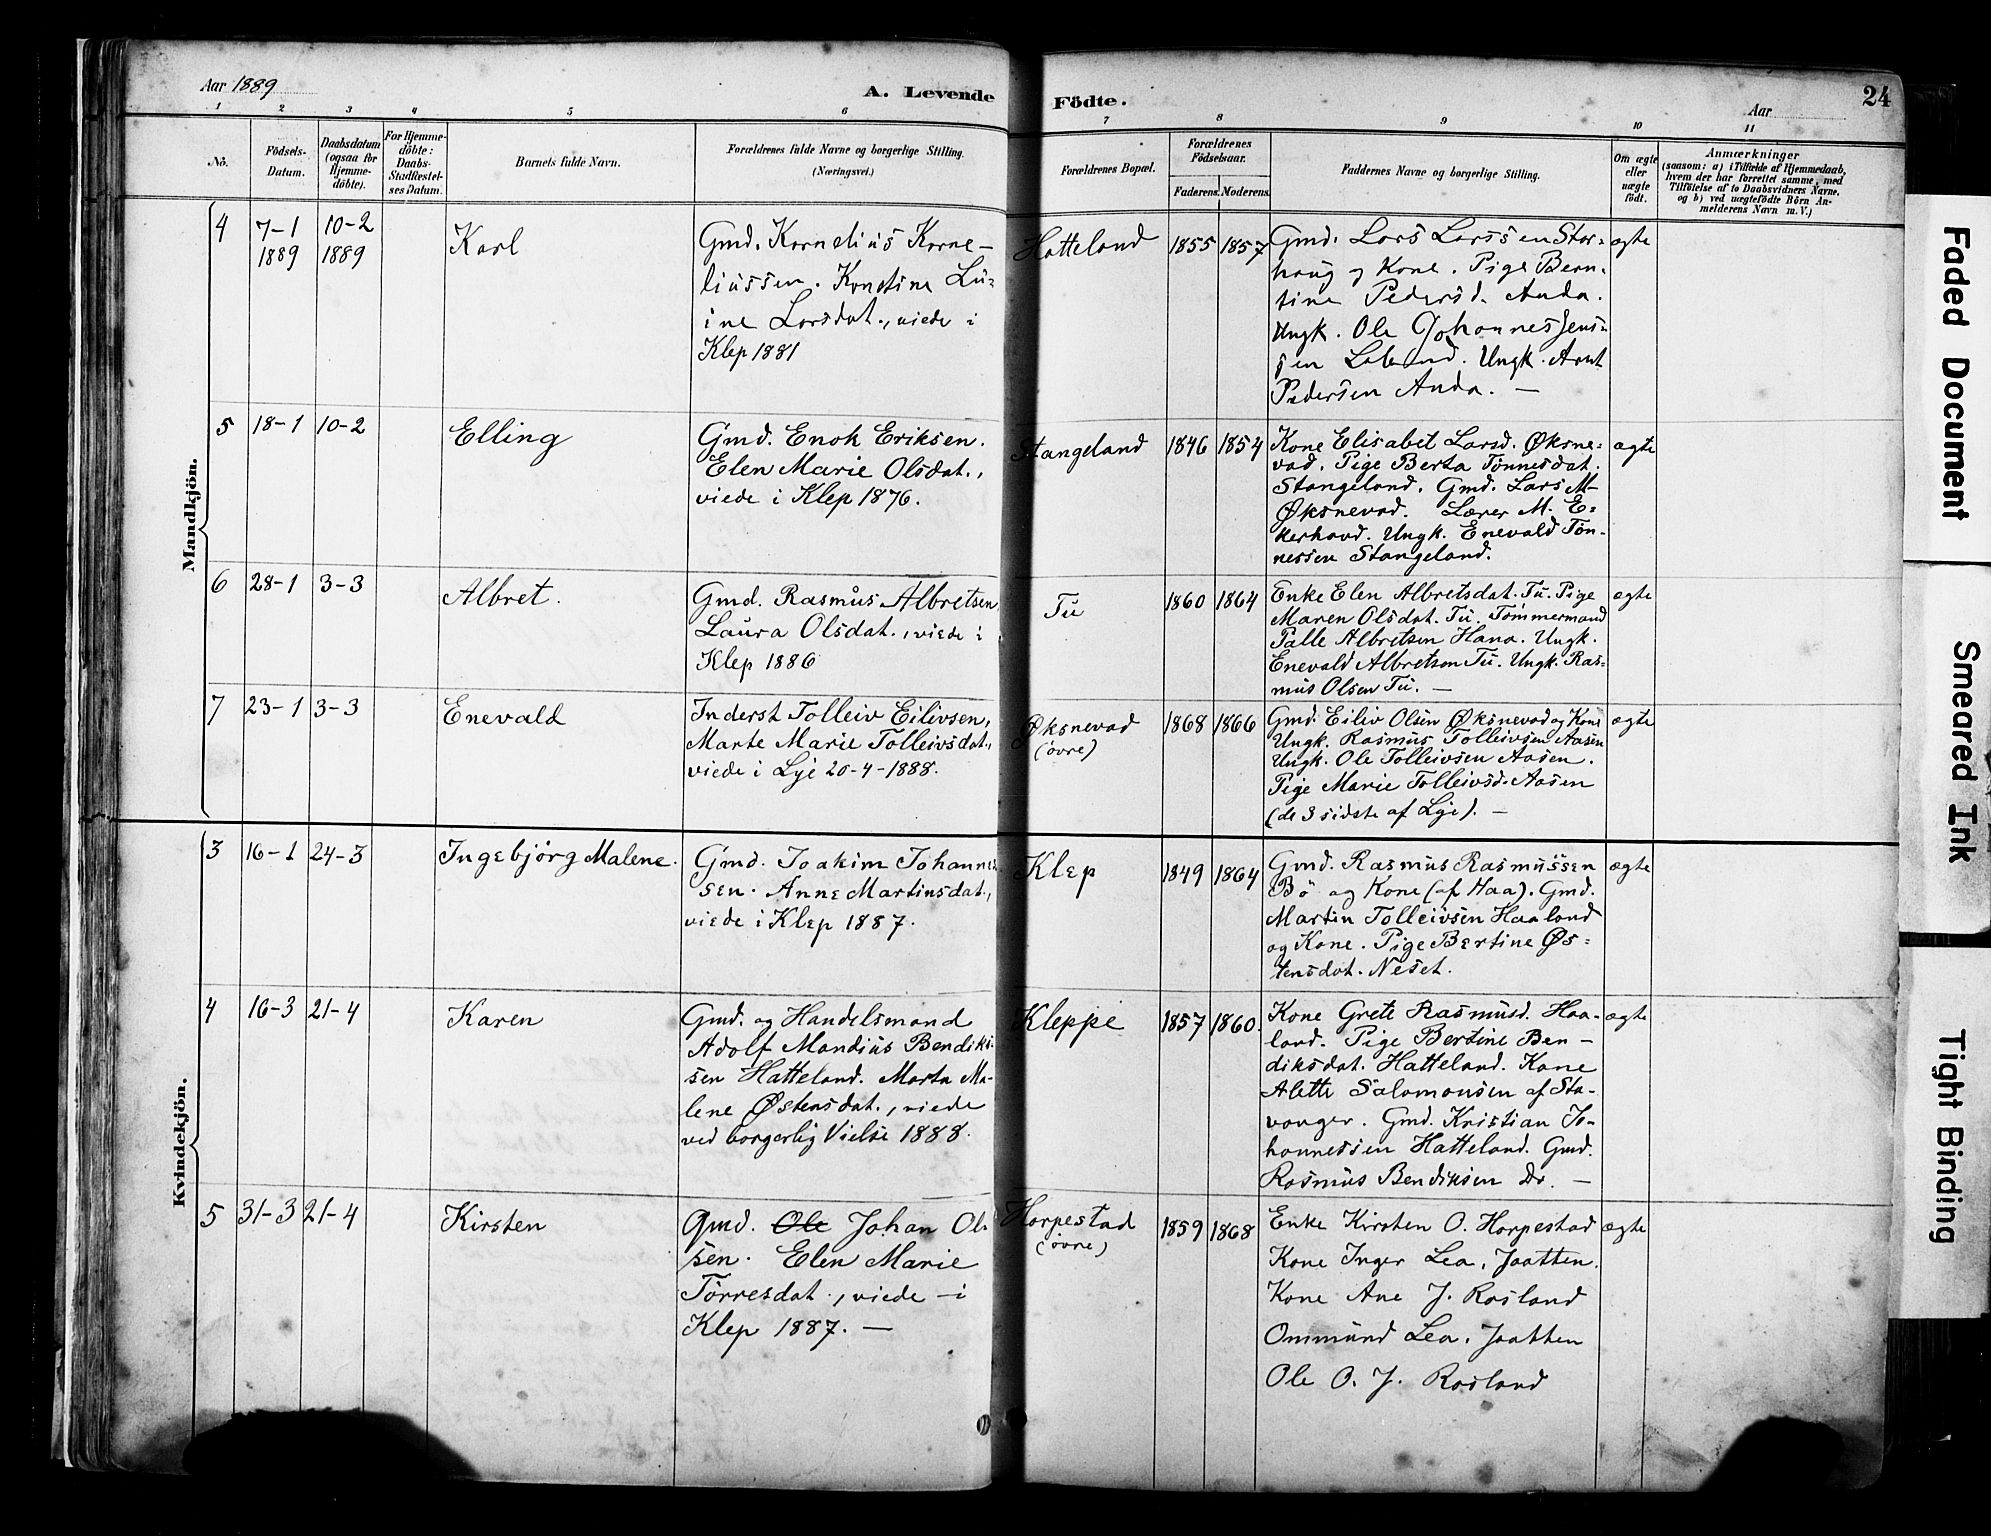 Aar 1889
A. Levende
Födte.
Aar
24
1 2 3 4 5 6 7 8 9 10 11
No.
Födsels-
Datum.
Daabsdatum
(ogsaa for
Hjemme-
döbte).
For Hjemme-
döbte:
Daabs-
Stadfæstel-
ses Datum.
Barnets fulde Navn.
Forældrenes fulde Navne og borgerlige Stilling.
(Næringsvei.)
Forældrenes Bopæl.
Forældrenes
Födselsaar.
Faderens.
Moderens.
Faddernes Navne og borgerlige Stilling.
Om ægte
eller
uægte
födt.
Anmærkninger
(saasom: a) i Tilfælde af Hjemmedaab,
hvem der har forrettet samme, med
Tilföielse af to Daabsvidners Navne,
og b) ved uægtefödte Börn An-
melderens Navn m. V.)
Mandkjön.
4
7-1
1889
10-2
1889
Karl
Gmd. Kornelius Korne-
liussen. Konstine Lu-
ine Larsdat., viede i
Klep 1881
Hatteland
1855
1857
Gmd. Lars Larssen Stor-
haug og Kone. Pige Bern-
tine Pedersd. Anda.
Ungk. Ole Johannes Jens-
sen Laland. Ungk. Arnt
Pedersen Anda. —
ægte
5
18-1
10-2
Elling
Gmd. Enok Eriksen.
Elen Marie Olsdat.,
viede i Klep 1876.
Stangeland
1846
1854
Kone Elisabet Larsd. Øksne-
vad. Pige Berta Tönnesdat.
Stangeland. Gmd. Lars M-
Øksnevad. Lærer M. E-
kerhovd. Ungk. Enevald Tön-
nessen Stangeland.
ægte
6
28-1
3-3
Albret.
Gmd. Rasmus Albretsen,
Laura Olsdat., viede i
Klep 1886
Tu
1860
1864
Enke Elen Albretsdat. Tu. Pige
Maren Olsdat. Tu. Tömmermand
Palle Albretsen Hana. Ungk.
Enevald Albretsen Tu. Ungk. Ras-
mus Olsen Tu. —
ægte
7
23-1
3-3
Enevald
Inderst Tolleiv Eilivsen,
Marte Marie Tolleivsdat.,
viede i Lye 20-4-1888.
Øksnevad
(övre)
1868
1866
Gmd. Eiliv Olsen Øksnevad og Kone
Ungk. Rasmus Tolleivsen Aasen
Ungk. Ole Tolleivsen Aasen.
Pige Marie Tolleivsd. Aasen
(de 3 sidste af Lye). —
ægte
Kvindekjön.
3
16-1
24-3
Ingebjörg Malene.
Gmd. Joakim Johannes
sen. Anne Martinsdat.,
viede i Klep 1887.
Klep
1849
1864
Gmd. Rasmus Rasmussen
Bö og Kone (af Haa). Gmd.
Martin Tolleivsen Haaland
og Kone. Pige Bertine Øs-
tensdat. Neset.
ægte
4
16-3
21-4
Karen
Gmd. og Handelsmand
Adolf Mandius Bendik-
sen Hatteland. Marta Ma-
lene Østensdat., viede
ved borgerlig Vielse 1888.
Kleppe
1857
1860.
Kone Grete Rasmusd. Haa-
land. Pige Bertine Ben-
diksdat. Hatteland. Kone
Alette Salomonsen af Sta-
vanger. Gmd. Kristian Jo-
hannessen Hatteland. Gmd.
Rasmus Bendiksen Do. —
ægte
5
31-3
21-4
Kirsten
Gmd. Ole Johan Ol-
sen. Elen Marie
Törresdat., viede i
Klep 1887. —
Horpestad
(övre)
1859
1868
Enke Kirsten O. Horpestad
Kone Inger Lea, Jaatten.
Kone Ane J. Rosland
Ommund Lea, Jaatten
Ole O. J. Rosland
ægte
Faded Document
Smeared Ink
Tight Binding